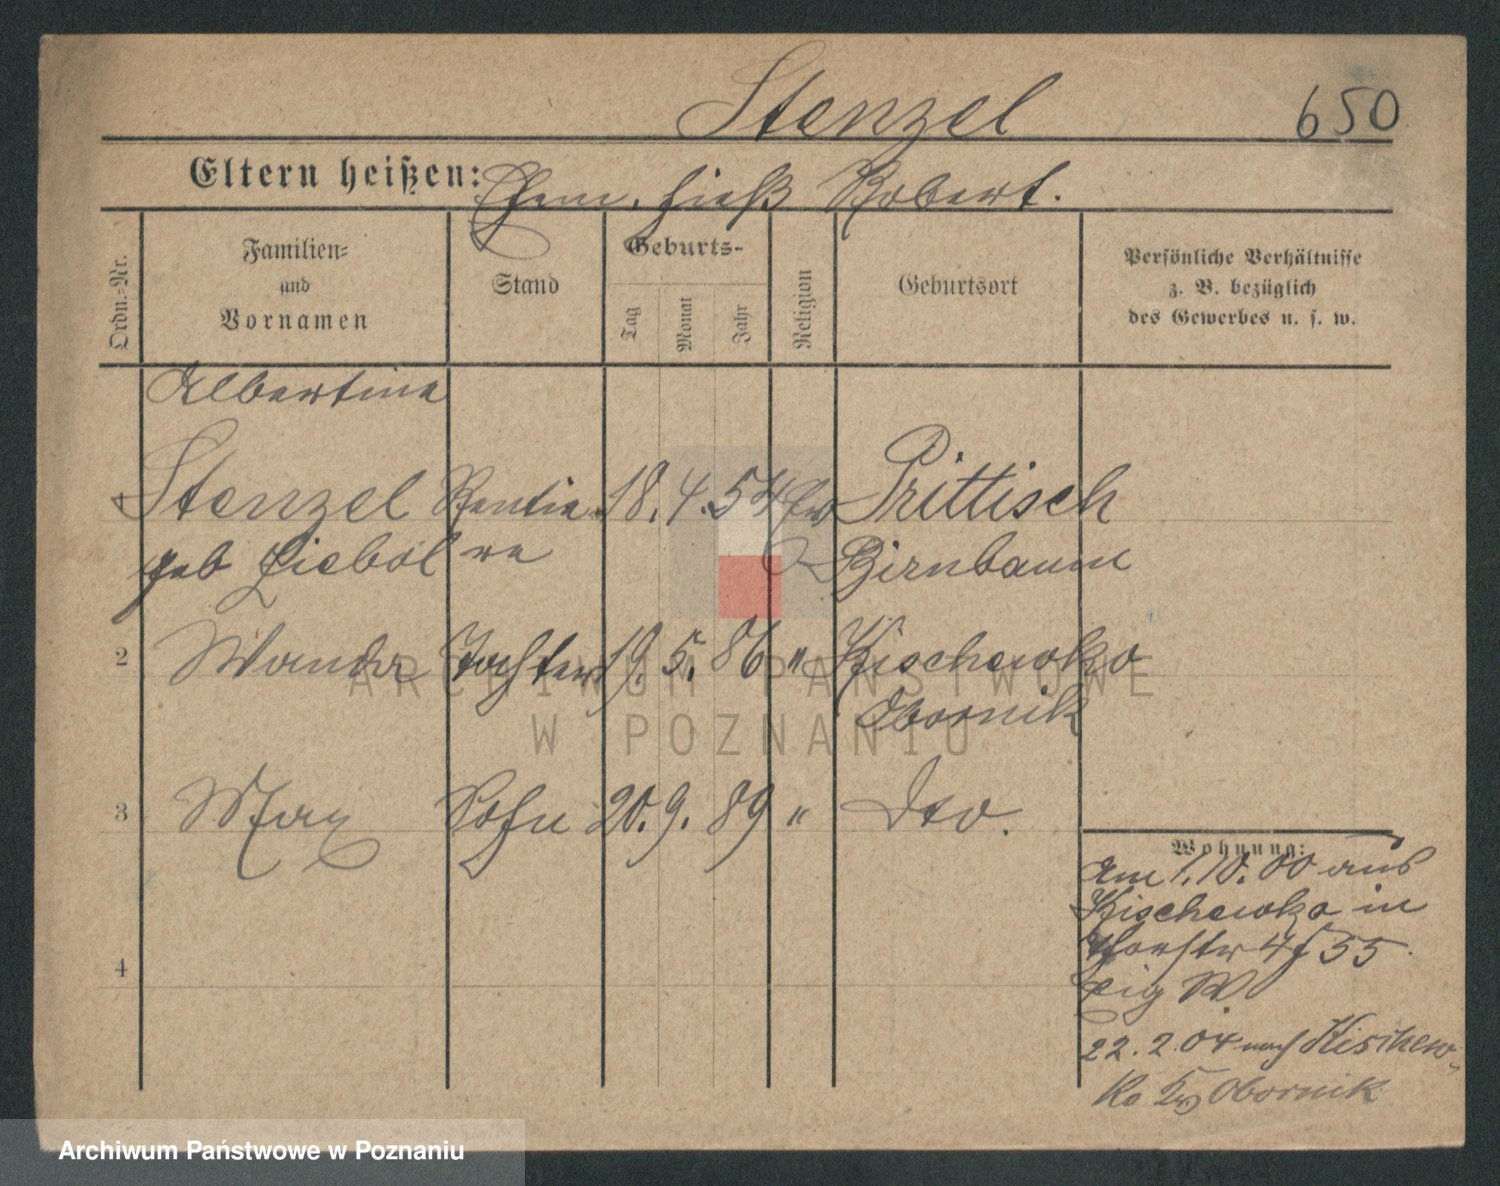 Stenzel
650
Eltern heißen: Ehem. hieß Robert.
Ordn.-Nr.
Familien-
und
Vornamen
Stand
Geburts-
Tag
Monat
Jahr
Religion
Geburtsort
Persönliche Verhältnisse
z. B. bezüglich
des Gewerbes u. s. w.
Albertine
Stenzel Rentie 18. 4. 54 Ev Prittisch
geb Liebol re Birnbaum
2 Wanda Tochter 19. 5. 86 " Kischewko
Obornik
3 Max Sohn 20. 9. 89 " Dto.
Wohnung:
Am 1.10.00 aus
Kischewko in
55
Eig W.
4
22.2.04 nach Kischew-
ko Obornik
ARCHIWUM PAŃSTWOWE
W POZNANIU
Archiwum Państwowe w Poznaniu